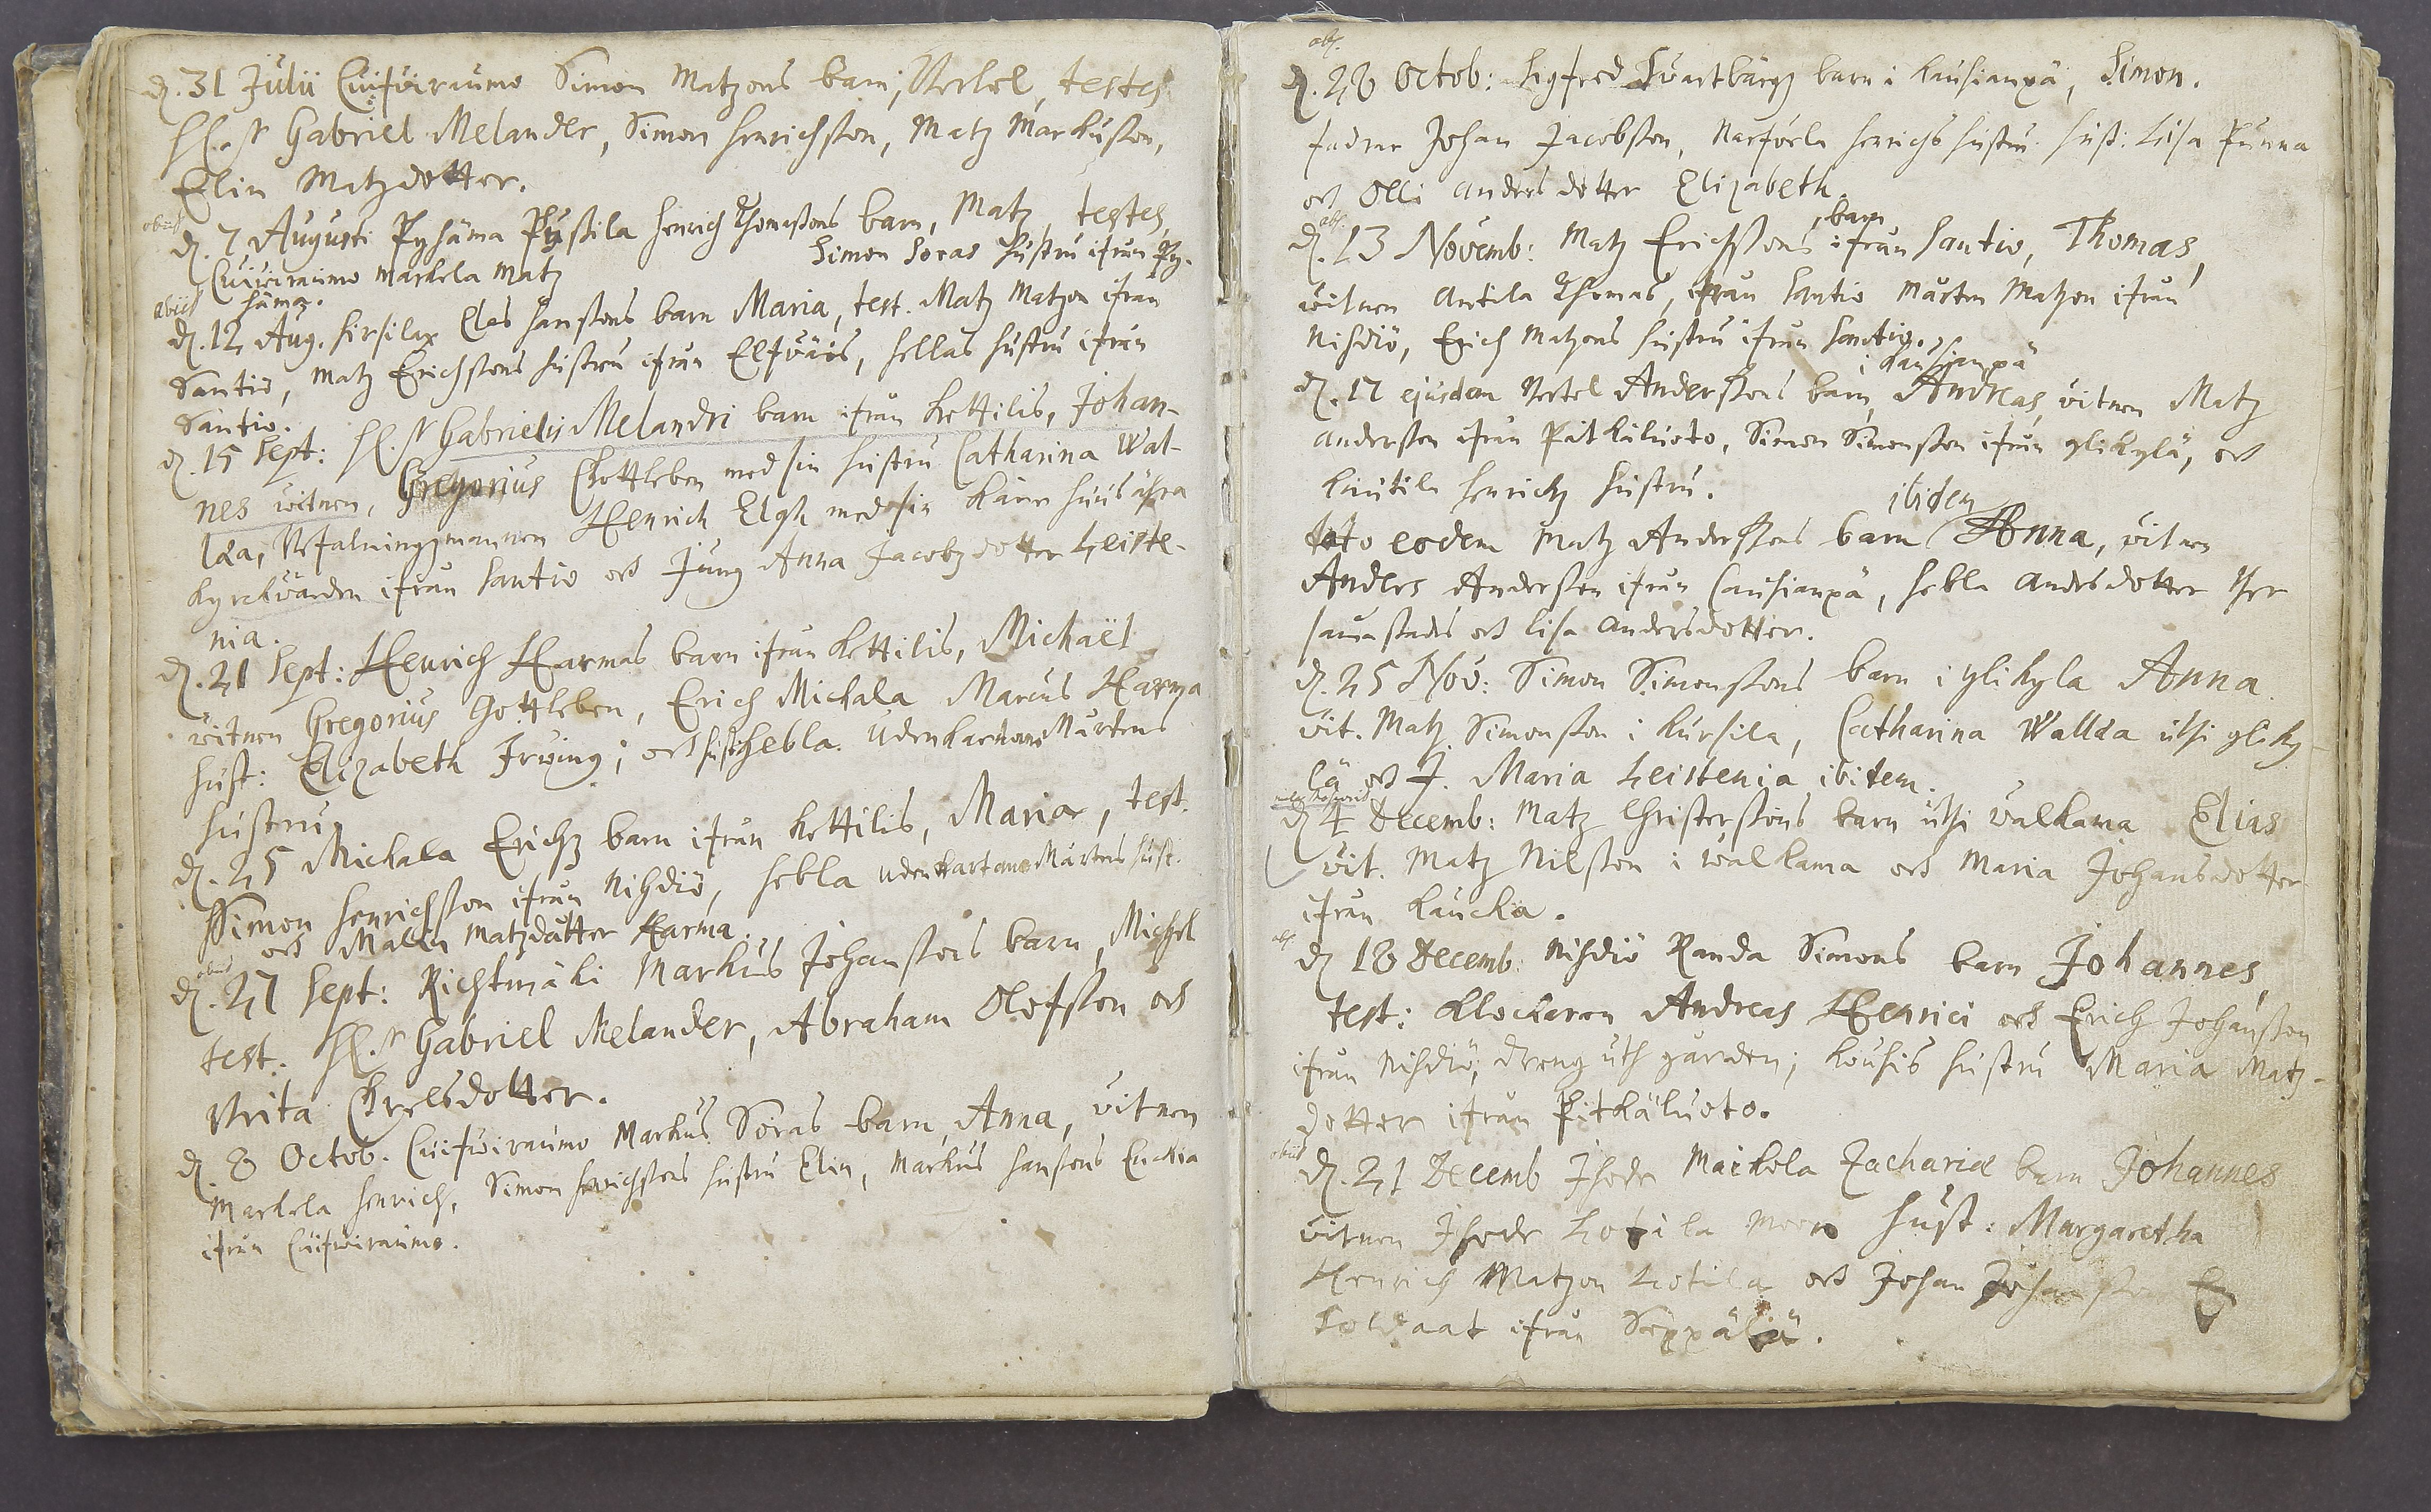 d. 31 Julii Cuifviraumo Simon Matzons barn, Bertel, testes
H. Hr Gabriel Melander, Simon Henrichsson, Matz Markusson,
Elin Matzdotter.
obiit
d. 7 Augusti Pyhäma Pyssila Henrich Thomassons barn, Matz, testes,
Cuiviraumo Markela Matz Simon Soras hustru ifrån Py-
häma.
obiit
d. 12 Aug. Hirsilax Clas Hanssons barn Maria, test. Matz Matzon ifrån
Santio, Matz Erichssons hustru ifrån Elfväis, Hellas hustru ifrån
Santio.
d. 15 Sept: H. Hr Gabrielis Melandri barn ifrån Kettilis, Johan-
nes witnen, Gregorius Gottleben med sin hustru Catharina Wal-
lda, Befalningzmannen Henrich Elgh med sin käre huusähra
Kyrckvärden ifrån Santio och Jung Anna Jacobz dotter Leiste-
nia.
d. 21 Sept: Henrich Harmas barn ifrån Kettilis, Michaël
witnen Gregorius Gottleben, Erich Mickala Marcus Harma
hust: Elizabeth Irwing; och hust Hebla Udenkartano Mårtens
hustru.
d. 25 Mickala Erichz barn ifrån Kettilis, Maria, test.
Simon Henrichsson ifrån Nihdiö, Hebla Udenkartano Mårtens hust.
och Malin Matzdåtter Harma.
obiit
d. 27 Sept: Richtmäki Markus Johanssons barn, Michel
test. H. Hr Gabriel Melander, Abraham Olofsson och
Brita Chrelsdotter.
d 8 Octob. Cuifviraumo Markus Soras barn, Anna, vitnen
Markela Henrich, Simon Henrichssons hustru Elin, Markus Hanssons Enckia
ifrån Cuifviraumo.
ob.
d. 28 Octob: Sigfred Svartbärgz barn i Kausianpä, Simon.
fadrar Johan Jacobsson, Henrichs hustru hust: Lisa Punna
och Olli anders dotter Elizabeth.
ob.
d. 13 Novemb: Matz Erichssons barn ifrån Santio, Thomas,
vitnen Antila Thomas, ifrån Santio Mårten Matzon ifrån
Nihdiö, Erich Matzons hustru ifrån Santio.
i Kausianpä
d. 17 ejusdem Bertel Anderssons barn, Andreas, vitnen Matz
Andersson ifrån Pitkäluoto, Simon Simonsson ifrån ylikylä, och
Knutila Henrichz hustru.
ibidem
dato eodem Matz Anderssons barn Anna, vitnen
Anders Andersson ifrån Causianpä, Hebla Anders dotter ther
sammastades och Lisa Andersdotter.
d. 25 Nov: Simon Simonssons barn i ylikyla Anna.
vit. Matz Simonsson i Kursila, Catharina Wallda uthi yliky-
lä och J. Maria Leistenia ibidem.
d 4 Decemb: Matz Christerssons barn uthi Valkama Elias
vit. Matz Nilsson i Walkama och Maria Johansdotter
ifrån Kaucka.
ob.
d 18 Decemb: Nihdiö Randa Simons barn Johannes,
test: Klockaren Andreas Henrici och Erich Johansson
ifrån Nihdiö, dreng uth gården; Kouhis hustru Maria Matz-
dotter ifrån Pitkäluoto.
obiit
d. 21 Decemb Ihode Markela Zachariæ barn Johannes
vitnen Ihode Hotila hust: Margaretha
Henrich Matzon Hotila och Johan Johansson En
Soldaat ifrån Seppälä.